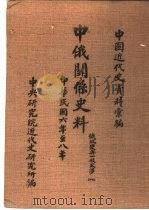 中國近代史資料彙編
中俄關係史料
中華民國六年至八年
中央研究院近代史研究所編